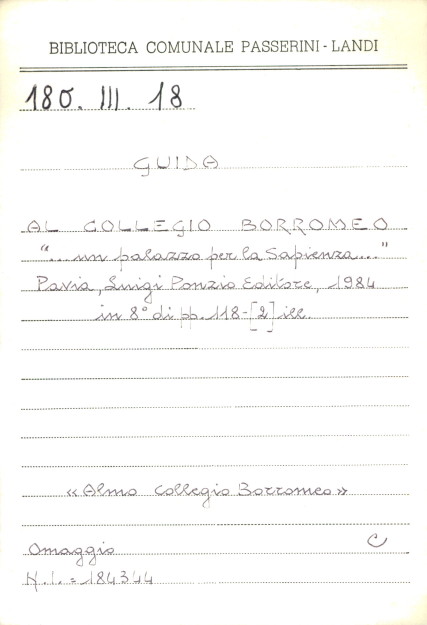 BIBLIOTECA COMUNALE PASSERINI-LANDI
180. III. 18
GUIDA
AL COLLEGIO BORROMEO
"...un palazzo per la Sapienza..."
Pavia, Luigi Ponzio Editore, 1984
in 8° di pp. 118-[2] ill.
«Almo Collegio Borromeo»
Omaggio C
N.I.=184344